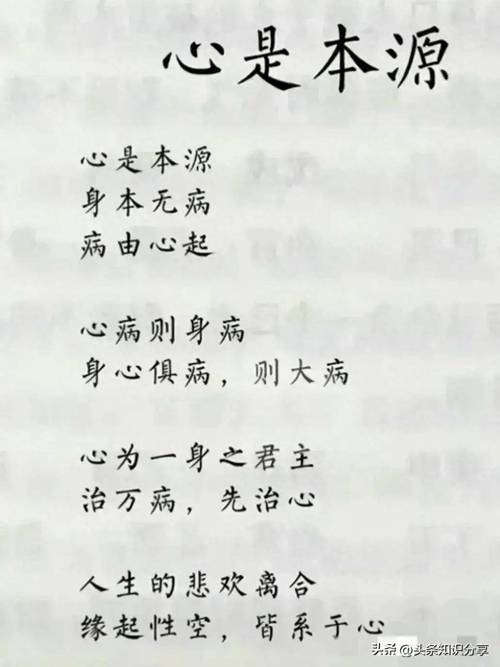 心是本源
心是本源
身本无病
病由心起
心病则身病
身心俱病，则大病
心为一身之君主
治万病，先治心
人生的悲欢离合
缘起性空，皆系于心
头条 @头条知识分享